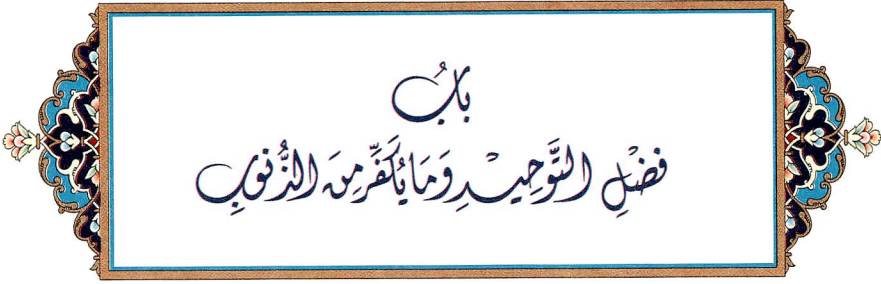 بَابُ
فَضْلِ التَّوْحِيدِ وَمَا يُكَفِّرُ مِنَ الذُّنُوبِ